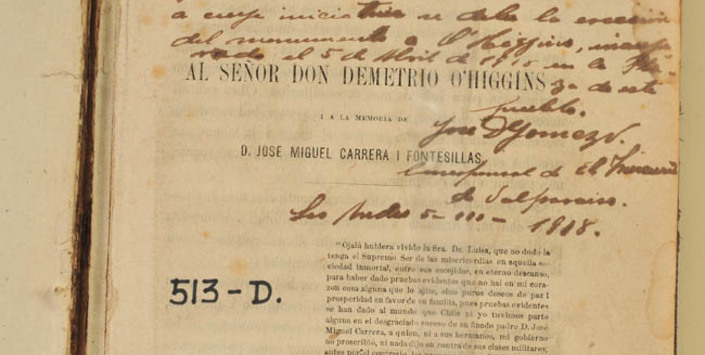 a cuya iniciativa se debe la erección
del monumento a O'Higgins, inaugu-
rado el 5 de Abril de 1915 en la Pla-
AL SEÑOR DON DEMETRIO O'HIGGINS
za de este
pueblo.
I A LA MEMORIA DE
José D Gomez V.
D. JOSE MIGUEL CARRERA I FONTESILLAS.
Corresponsal de El Mercurio
de Valparaiso.
Los Andes 5-III-1918.
"Ojalá hubiera vivido la Sra. Da. Luisa, que no dudo la
tenga el Supremo Ser de las misericordias en aquella so-
ciedad inmortal, entre sus escojidos, en eterno descanso,
para haber dado pruebas evidentes que no hai en mi cora-
zon cosa alguna que lo ajite, sino puros deseos de paz i
prosperidad en favor de su familia, pues pruebas evidentes
se han dado al mundo que Chile ni yo tuvimos parte
alguna en el desgraciado suceso de su finado padre D. José
Miguel Carrera, a quien, ni a sus hermanos, mi gobierno
no proscribió, ni nada dijo en contra de sus clases militares;
antes por el contrario
513-D.